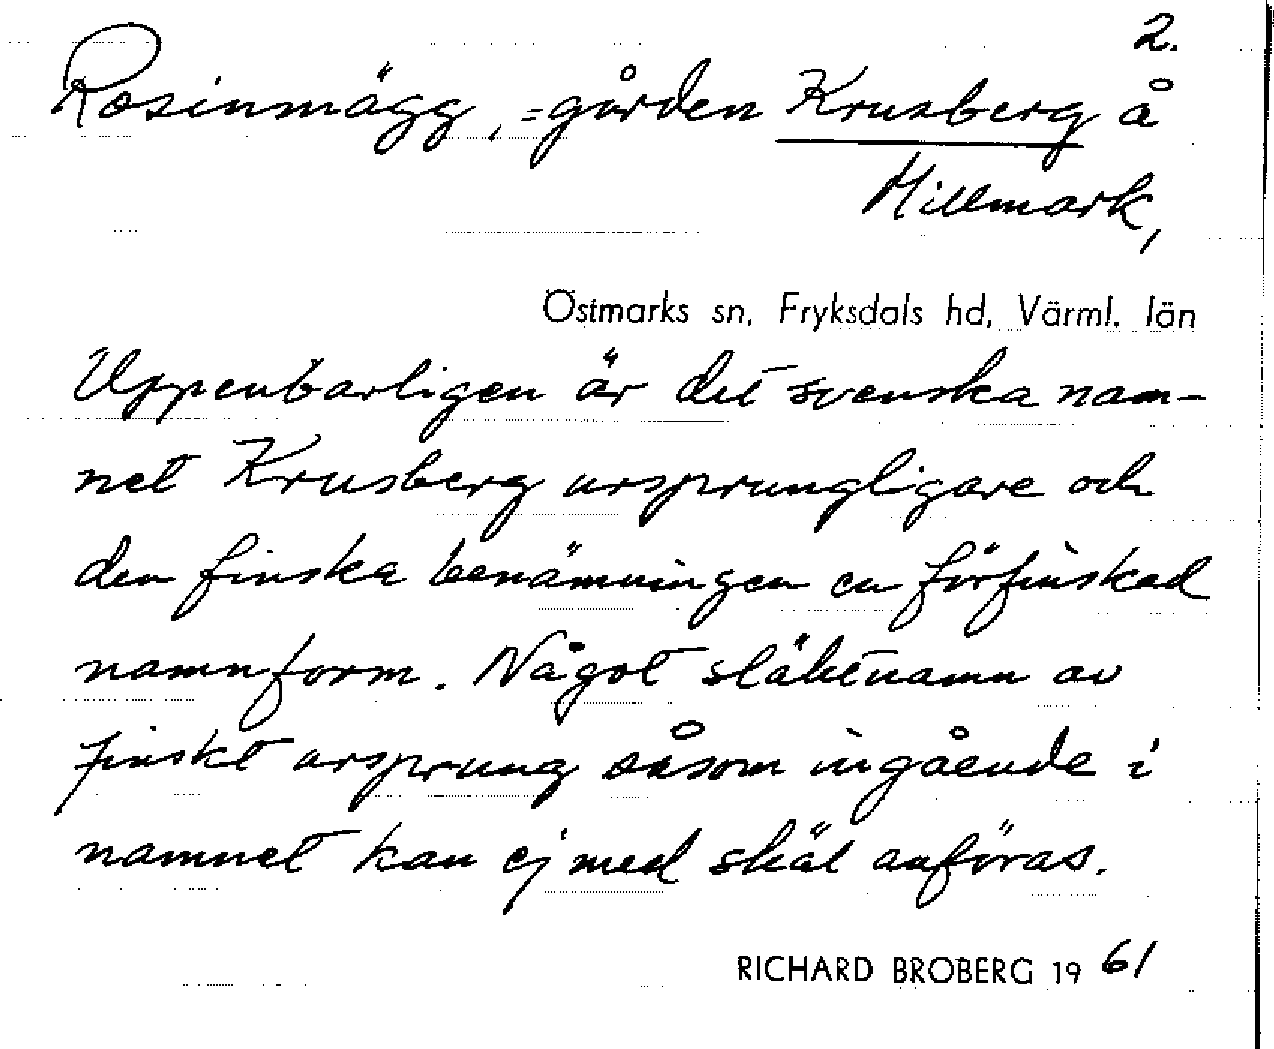 2.
Rosinmägg, =gården Krusberg å
Millmark,
Östmarks sn, Fryksdals hd, Värml. län
Uppenbarligen är det svenska nam-
net Krusberg ursprungligare och
den finska benämningen en förfinskad
namnform. Något släktnamn av
finskt ursprung såsom ingående i
namnet kan ej med skäl anföras.
RICHARD BROBERG 1961